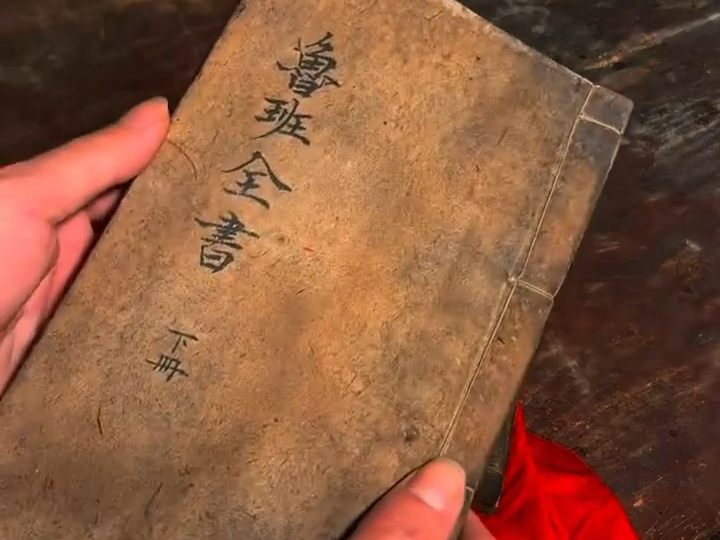 魯班全書
下冊